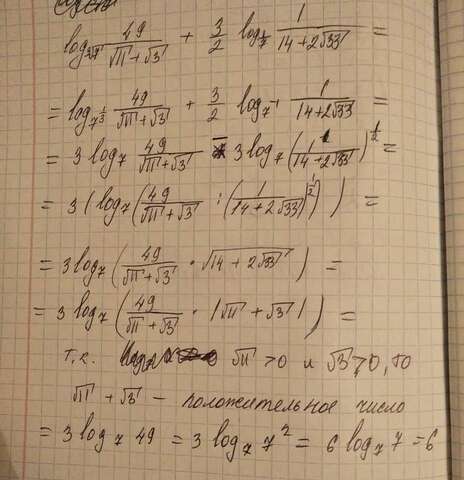 log_{∛7} \frac{49}{√11 + √3} + \frac{3}{2} log_{\frac{1}{7}} \frac{1}{14 + 2√33} =
= log_{7^{\frac{1}{3}}} \frac{49}{√11 + √3} + \frac{3}{2} log_{7^{-1}} \frac{1}{14 + 2√33} =
= 3 log_7 \frac{49}{√11 + √3} - 3 log_7 (\frac{1}{14 + 2√33})^{\frac{1}{2}} =
= 3 ( log_7 ( \frac{49}{√11 + √3} : (\frac{1}{14 + 2√33})^{\frac{1}{2}} ) ) =
= 3 log_7 ( \frac{49}{√11 + √3} · √14 + 2√33 ) =
= 3 log_7 ( \frac{49}{√11 + √3} · |√11 + √3| ) =
т.к. √11 > 0 и √3 > 0, то
√11 + √3 - положительное число
= 3 log_7 49 = 3 log_7 7^2 = 6 log_7 7 = 6